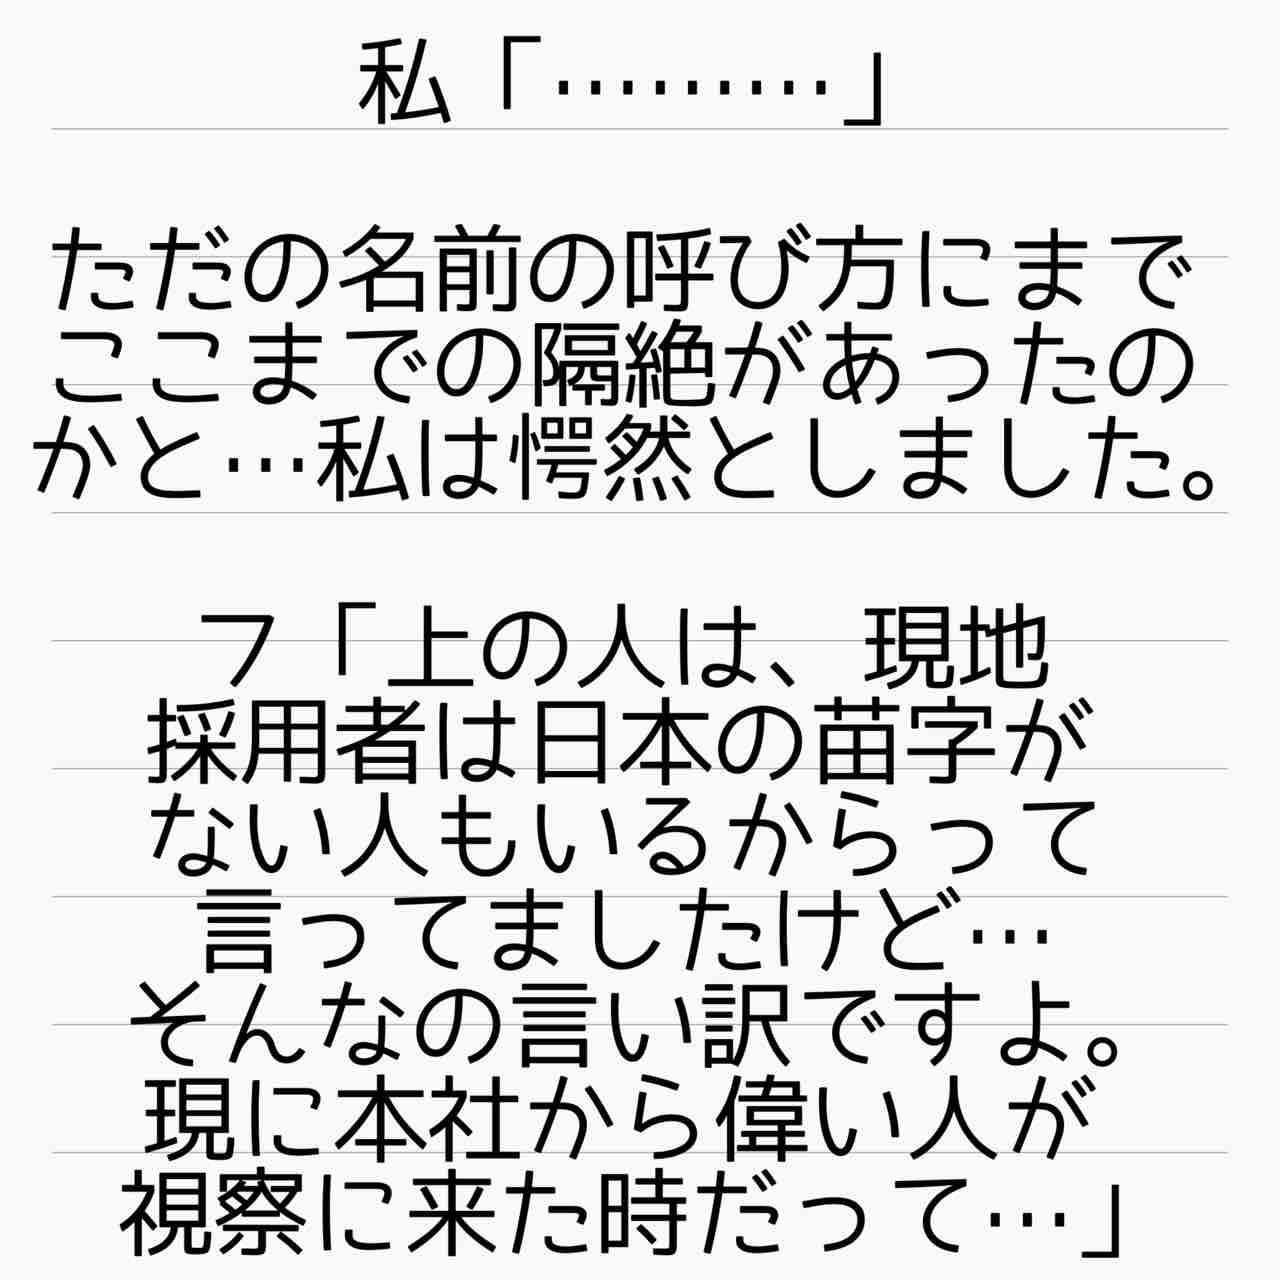 私「………」
ただの名前の呼び方にまで
ここまでの隔絶があったの
かと…私は愕然としました。
フ「上の人は、現地
採用者は日本の苗字が
ない人もいるからって
言ってましたけど…
そんなの言い訳ですよ。
現に本社から偉い人が
視察に来た時だって…」